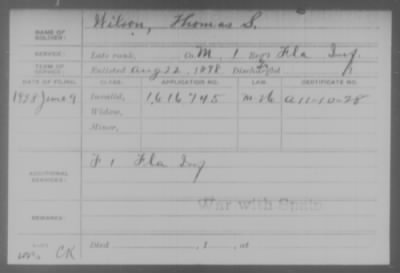 NAME OF SOLDIER: Wilson, Thomas S.
SERVICE: Late rank, Co. M, 1 Reg't Fla Inf.
TERM OF SERVICE: Enlisted Aug 22, 1898 Discharged
DATE OF FILING. CLASS. APPLICATION NO. LAW. CERTIFICATE NO.
1928 June 9 Invalid, 1,616,745 A 11-10-28
Widow,
Minor,
ADDITIONAL SERVICES: F 1 Fla Inf
War with Spain
REMARKS:
Died , 1 , at
CK